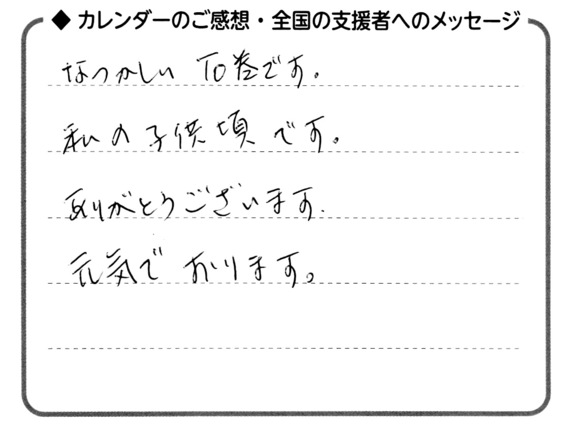 ◆ カレンダーのご感想・全国の支援者へのメッセージ
なつかしい 石巻です。
私の子供頃です。
ありがとうございます.
元気で おります。